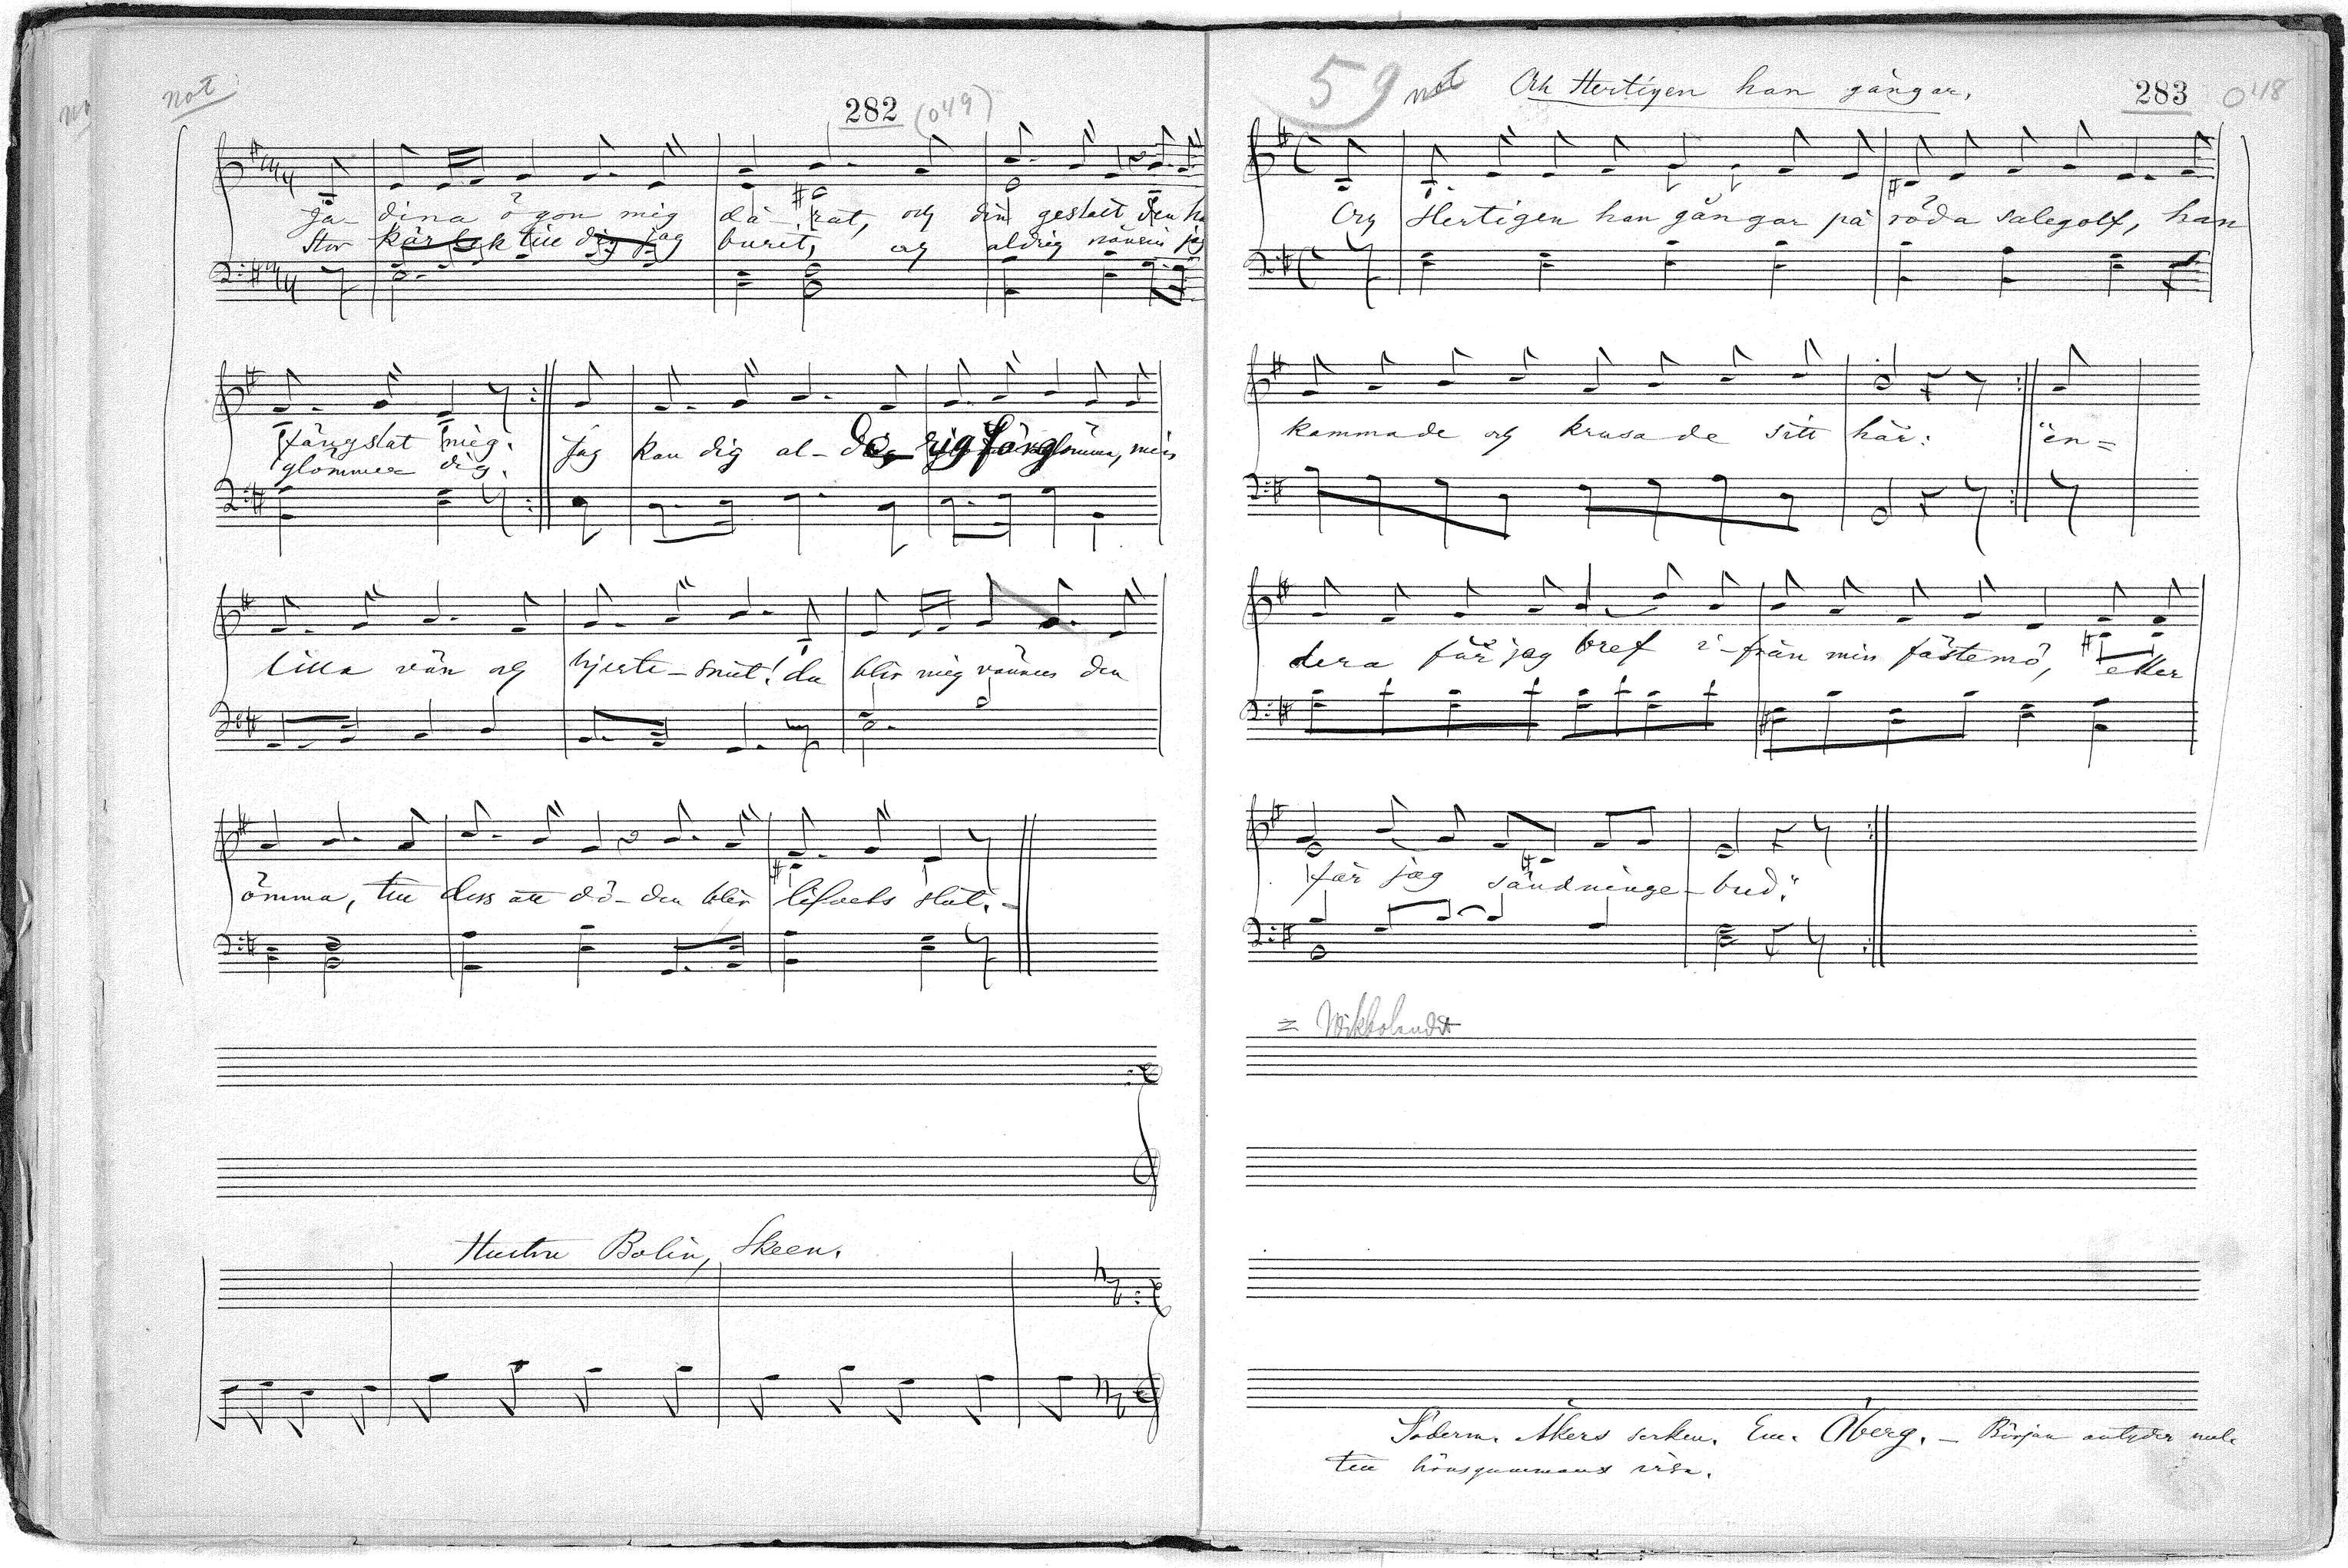 not
282 (049)
Ja- dina ögon mig då- rat, och din gestalt den ha
Stor kärlek till dig jag burit, och aldrig nånsin jag
fängslat mig.
glömmer dig.
Jag kan dig al- drig förglömma, min
lilla vän och hjerte-snut! du blir mig vännen den
ömma, till dess att dö-den blir lifvets slut. -
Hustru Bolin, Skeen.
59 not Och Hertigen han gångar. 283
Och Hertigen han gångar på röda salegolf, han
kammade och krusade sitt hår: "än=
dera får jag bref i-från min fästemö, eller
får jag sändninge-bud."
= 
Söderm. Åkers socken. Em. Öberg. - Början antyder
till hönsgummans visa.